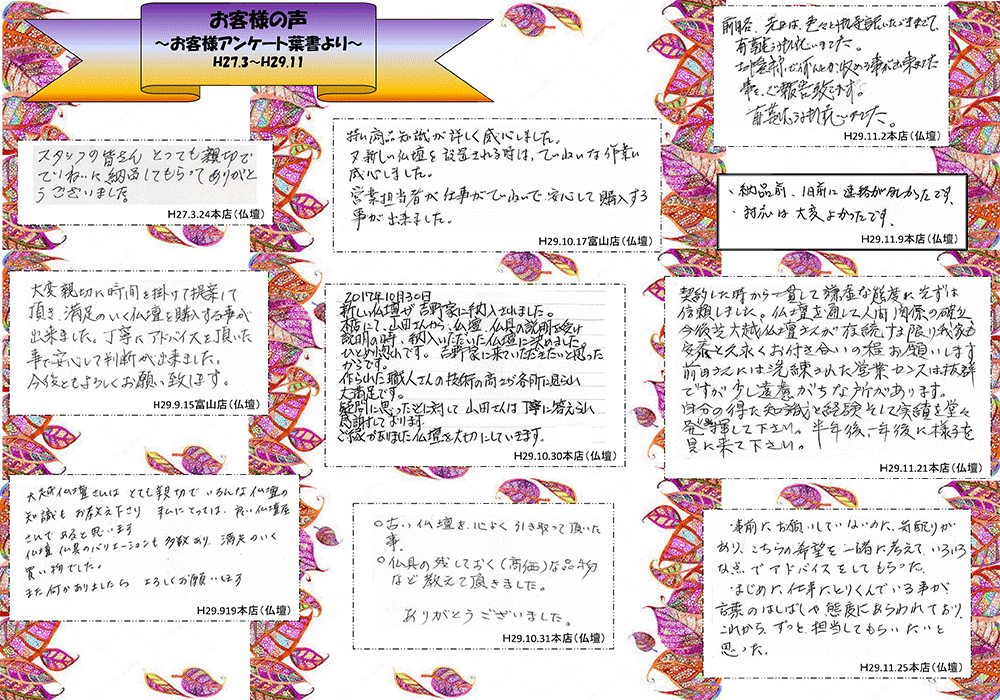 お客様の声
～お客様アンケート葉書より～
H27.3～H29.11
スタッフの皆さん とっても親切で
ていねいに納品してもらってありがと
うございました
H27.3.24本店(仏壇)
大変親切に時間を掛けて提案して
頂き、満足のいく仏壇を購入する事が
出来ました。丁寧にアドバイスを頂いた
事で安心して判断が出来ました。
今後ともよろしくお願い致します。
H29.9.15富山店(仏壇)
大越仏壇さんは とても親切で いろんな仏壇の
知識もお教え下さり 私にとっては、良い仏壇店
さんであると思います
仏壇 仏具のバリエーションも多数あり、満足のいく
買い物でした。
また何かありましたら よろしくお願いします
H29.919本店(仏壇)
扱い商品知識が詳しく感心しました。
又新しい仏壇を設営される時は、ていねいな作業に
感心しました。
営業担当者が仕事がていねいで、安心して購入する
事が出来ました。
H29.10.17富山店(仏壇)
2017年10月30日
新しい仏壇が吉野家に納入されました。
本店にて、山田さんから、仏壇、仏具の説明を受け
説明の時、納入いただいた仏壇に決めました。
ひとめ惚れです。吉野家に来ていただきたいと思った
からです。
作られた職人さんの技術の高さが各所に見られ
大満足です。
疑問に思ったことに対して 山田さんは丁寧に答えられ
感謝しております
ご縁がありました仏壇を大切にしていきます。
H29.10.30本店(仏壇)
○古い仏壇を、心よく引き取って頂いた
事。
○仏具の残しておく(高価)な品物
など教えて頂きました。
ありがとうございました。
H29.10.31本店(仏壇)
前略、先日は、色々とお世話いただきまして、
有難うございました。
お陰様で、
事を、ご報告致します。
有難うございました。
H29.11.2本店(仏壇)
・納品前、1日前に連絡が欲しかったです、
・対応は大変よかったです、
H29.11.9本店(仏壇)
契約した時から一貫して謙虚な態度に先ずは
信頼しました。仏壇を通した人間関係の確立
今後共大越仏壇さんが存続する限り我家も
末永くお付き合いの程お願いします
前田さんには洗練された営業センスは抜群
ですが少し遠慮がちな所があります。
自分の得た知識と経験そして実績を堂々
発揮して下さい。半年後、一年後に様子を
見に来て下さい。
H29.11.21本店(仏壇)
・事前にお願いしていないのに、気配りが
あり、こちらの希望を一緒に考えて、いろいろ
な点でアドバイスをしてもらった。
・まじめに、仕事にとりくんでいる事が
言葉のはしばしや態度にあらわれており、
これから、ずっと、担当してもらいたいと
思った。
H29.11.25本店(仏壇)